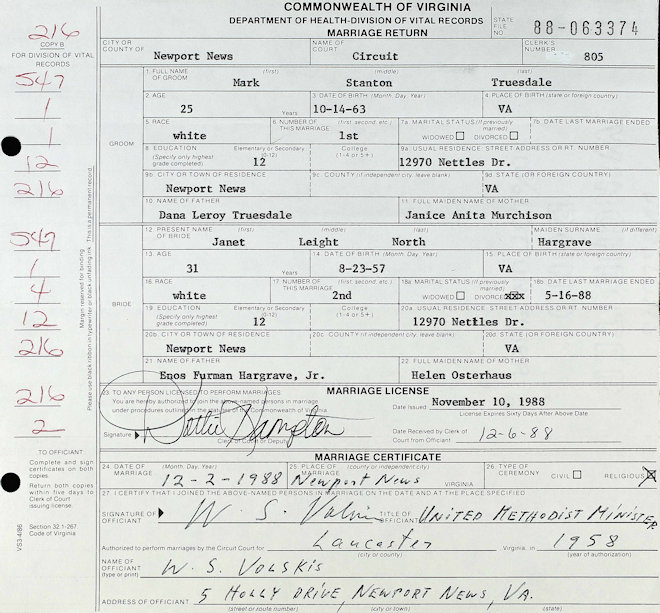 COMMONWEALTH OF VIRGINIA
DEPARTMENT OF HEALTH-DIVISION OF VITAL RECORDS
MARRIAGE RETURN
STATE FILE NO. 88-063374
216
COPY B
FOR DIVISION OF VITAL RECORDS
547
1
1
12
216
547
1
4
12
216
216
2
Margin reserved for binding
Please use black ribbon in typewriter or black unfading ink. This is a permanent record.
TO OFFICIANT
Complete and sign certificates on both copies.
Return both copies within five days to Clerk of Court issuing license.
Section 32.1-267 Code of Virginia
VS3 4/86
CITY OR COUNTY OF Newport News NAME OF COURT Circuit CLERK'S NUMBER 805
GROOM
1. FULL NAME OF GROOM (first) Mark (middle) Stanton (last) Truesdale
2. AGE 25 Years 3. DATE OF BIRTH (Month, Day, Year) 10-14-63 4. PLACE OF BIRTH (state or foreign country) VA
5. RACE white 6. NUMBER OF THIS MARRIAGE (first, second, etc.) 1st 7a. MARITAL STATUS (If previously married) WIDOWED DIVORCED 7b. DATE LAST MARRIAGE ENDED
8. EDUCATION (Specify only highest grade completed) Elementary or Secondary (0-12) 12 College (1-4 or 5+) 9a. USUAL RESIDENCE: STREET ADDRESS OR RT. NUMBER 12970 Nettles Dr.
9b. CITY OR TOWN OF RESIDENCE Newport News 9c. COUNTY (If independent city, leave blank) 9d. STATE (OR FOREIGN COUNTRY) VA
10. NAME OF FATHER Dana Leroy Truesdale 11. FULL MAIDEN NAME OF MOTHER Janice Anita Murchison
BRIDE
12. PRESENT NAME OF BRIDE (first) Janet (middle) Leight (last) North MAIDEN SURNAME (if different) Hargrave
13. AGE 31 Years 14. DATE OF BIRTH (Month, Day, Year) 8-23-57 15. PLACE OF BIRTH (state or foreign country) VA
16. RACE white 17. NUMBER OF THIS MARRIAGE (first, second, etc.) 2nd 18a. MARITAL STATUS (If previously married) WIDOWED DIVORCED xxx 18b. DATE LAST MARRIAGE ENDED 5-16-88
19. EDUCATION (Specify only highest grade completed) Elementary or Secondary (0-12) 12 College (1-4 or 5+) 20a. USUAL RESIDENCE: STREET ADDRESS OR RT. NUMBER 12970 Nettles Dr.
20b. CITY OR TOWN OF RESIDENCE Newport News 20c. COUNTY (If independent city, leave blank) 20d. STATE (OR FOREIGN COUNTRY) VA
21. NAME OF FATHER Enos Furman Hargrave, Jr. 22. FULL MAIDEN NAME OF MOTHER Helen Osterhaus
MARRIAGE LICENSE
23. TO ANY PERSON LICENSED TO PERFORM MARRIAGES:
You are hereby authorized to join the above-named persons in marriage under procedures outlined in the statutes of the Commonwealth of Virginia.
Date Issued November 10, 1988
License Expires Sixty Days After Above Date
Signature Hampton
Clerk of Court or Deputy
Date Received by Clerk of Court from Officiant 12-6-88
MARRIAGE CERTIFICATE
24. DATE OF MARRIAGE (Month, Day, Year) 12-2-1988 25. PLACE OF MARRIAGE (county or independent city) Newport News VIRGINIA 26. TYPE OF CEREMONY CIVIL RELIGIOUS X
27. I CERTIFY THAT I JOINED THE ABOVE-NAMED PERSONS IN MARRIAGE ON THE DATE AND AT THE PLACE SPECIFIED
SIGNATURE OF OFFICIANT W. S. Volskis TITLE OF OFFICIANT UNITED METHODIST MINISTER
Authorized to perform marriages by the Circuit Court for Lancaster (city or county) Virginia, in 1958 (year of authorization)
NAME OF OFFICIANT (type or print) W. S. VOLSKIS
ADDRESS OF OFFICIANT 5 HOLLY DRIVE, NEWPORT NEWS, VA.
(street or route number) (city or town) (state)